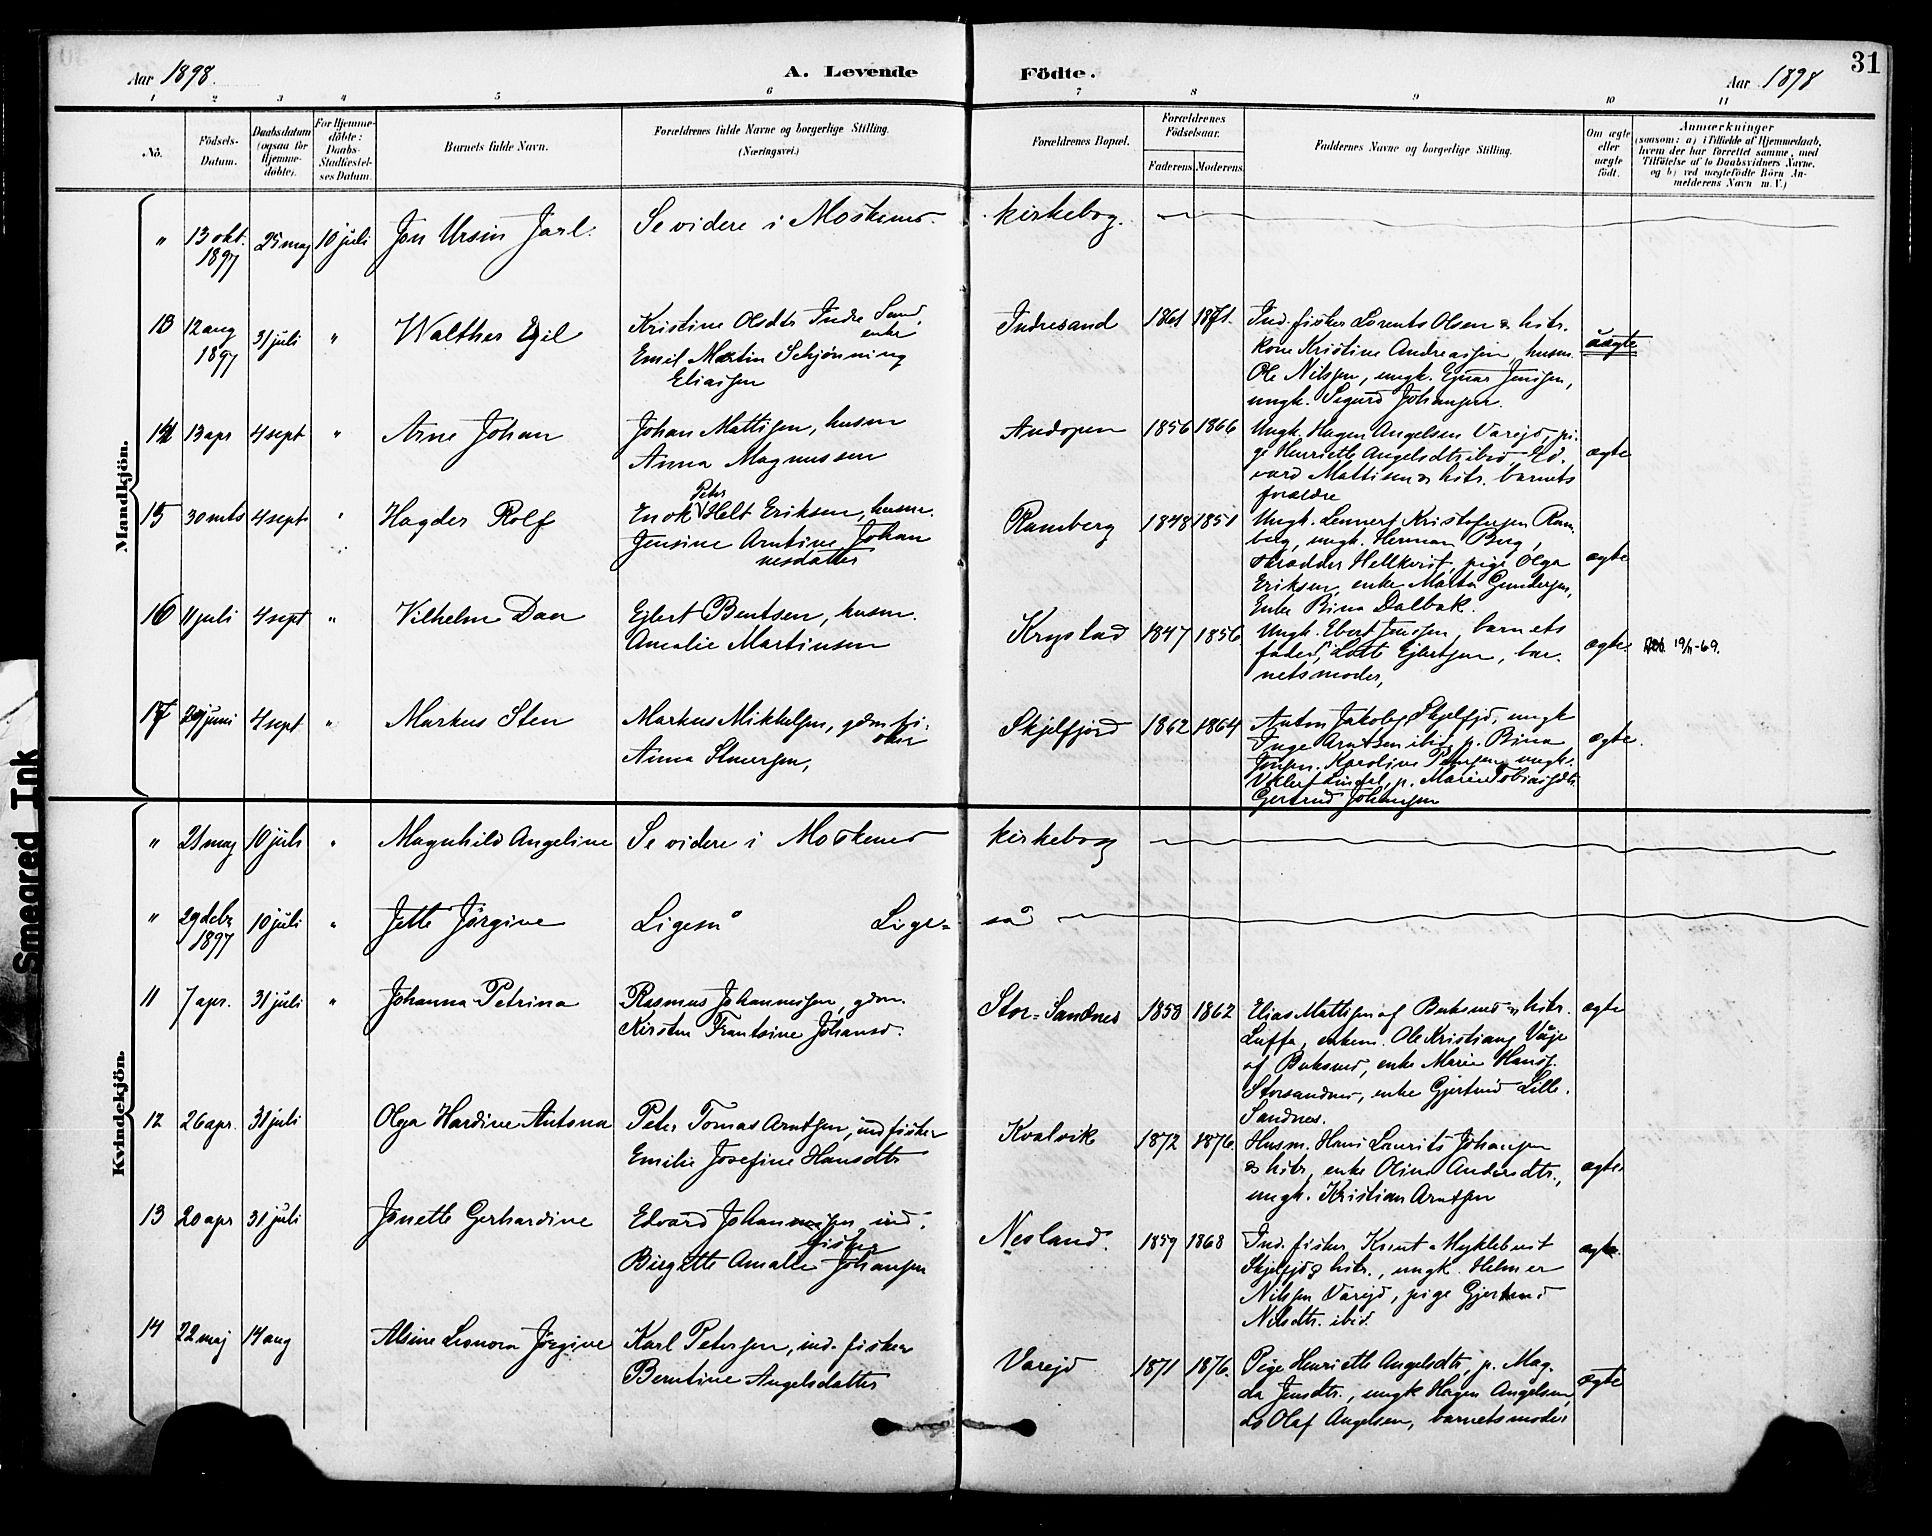 31
Aar 1898. A. Levende Födte. Aar 1898
1 2 3 4 5 6 7 8 9 10 11
No.
Födsels-Datum.
Daabsdatum (ogsaa for Hjemme-döbte).
For Hjemme-döbte: Daabs-Stadfæstel-ses Datum.
Barnets fulde Navn.
Forældrenes fulde Navne og borgerlige Stilling. (Næringsvei.)
Forældrenes Bopæl.
Forældrenes Födselsaar.
Faderens Moderens
Faddernes Navne og borgerlige Stilling.
Om ægte eller uægte födt.
Anmærkninger
(saasom: a) i Tilfælde af Hjemmedaab,
hvem der har forrettet samme, med
Tilföielse af to Daabsvidners Navne,
og b) ved uægtefödte Börn An-
melderens Navn m. V.)
Mandkjön.
" 13 okt. 1897 25 maj 10 juli Jon Ursin Jarl. Se videre i Moskenes kirkebog.
13 12 aug 1897 31 juli " Walther Egil
Kristine Olsdtr Indre Sand, enke
Emil Martin Schjønning
Eliassen
Indresand 1861 1871.
Ind. fisker Lorents Olsen & hstr.
kone Kristine Andreassen, husm.
Ole Nilssen, ungk. Ejnar Jenssen,
ungk. Sigurd Johansen.
uægte
14 13 apr 4 sept " Arne Johan
Johan Mattisen, husm
Anna Magnussen
Andopen 1856 1866
Ungk. Hagen Angelsen Varejd, pi-
ge Henriette Angelsdtr ibid, Ed-
vard Mattisen & hstr. barnets
forældre
ægte
15 30 mts 4 sept " Hagder Rolf
Enok Peter Holt Eriksen, husm.
Jensine Arntine Johan
nesdatter
Ramberg 1848 1851
Ungk. Lennert Kristofersen Ram-
berg, ungk. Herman Berg,
skrædder Hellkvist, pige Olga
Eriksen, enke Marta Gundersen,
Enke Bina Dalbak.
ægte
16 11 juli 4 sept " Vilhelm Daa
Ejlert Bentsen, husm.
Amalie Martinsen
Krystad 1847 1856.
Ungk. Ebert Jenssen, barnets
fader, Lotte Ejlertsen, bar-
netsmoder,
ægte. 19/11-69.
17 29 juni 4 sept " Markus Sten
Markus Mikkelsen, gdm fi-
sker
Anna Stenersen,
Skjelfjord 1862 1864
Anton Jakobs. Skjelfjd, ungk
Inge Arntsen ibid, p. Bina
Jensen, Karoline Petersen, ungk.
p. Marie Tobiasdtr.
Gertrud Johansen
ægte.
Kvindekjön.
" 21 maj 10 juli " Magnhild Angeline Se videre i Moskenes kirkebog
" 29 debr 1897 10 juli " Jette Jørgine Ligeså Lige= så
11 7 apr. 31 juli " Johanna Petrina
Rasmus Johannissen, gdm.
Kirsten Frantsine Johansd.
Stor=Sandnes 1858 1862
Elias Mattisen af Buksnes & hstr.
Luffa, enkem. Ole Kristians. Våje
af Buksnes, enke Marie Hans.
Storsandnes, enke Gjertrud Lille-
Sandnes.
ægte
12 26 apr. 31 juli Olga Hardine Antona
Peter Tomas Arntsen, ind fisker
Emilie Josefine Hansdtr
Kvalvik 1872 1876.
Husm. Hans Laurits Johansen
& hstr, enke Oline Andersdtr.,
ungk. Kristian Arntsen
ægte
13 20 apr 31 juli Jonette Gerhardine
Edvard Johannissen ind.
fisker
Birgitte Amalie Johansen
Nesland. 1859 1868
Ind. fisker Knut Myklebust
Skjelfjd & hstr., ungk. Helmer
Nilssen Varejd, pige Gjertrud
Nilsdtr. ibid.
ægte
14 22 maj 14 aug Alsine Leonora Jörgine
Karl Petersen, ind. fisker
Berntine Angelsdatter
Varejd 1871 1876.
Pige Henriette Angelsdtr, p. Mag-
da Jensdtr., ungk Hagen Angelsen,
do Olaf Angelsen, barnetsmoder
ægte
Smeared Ink